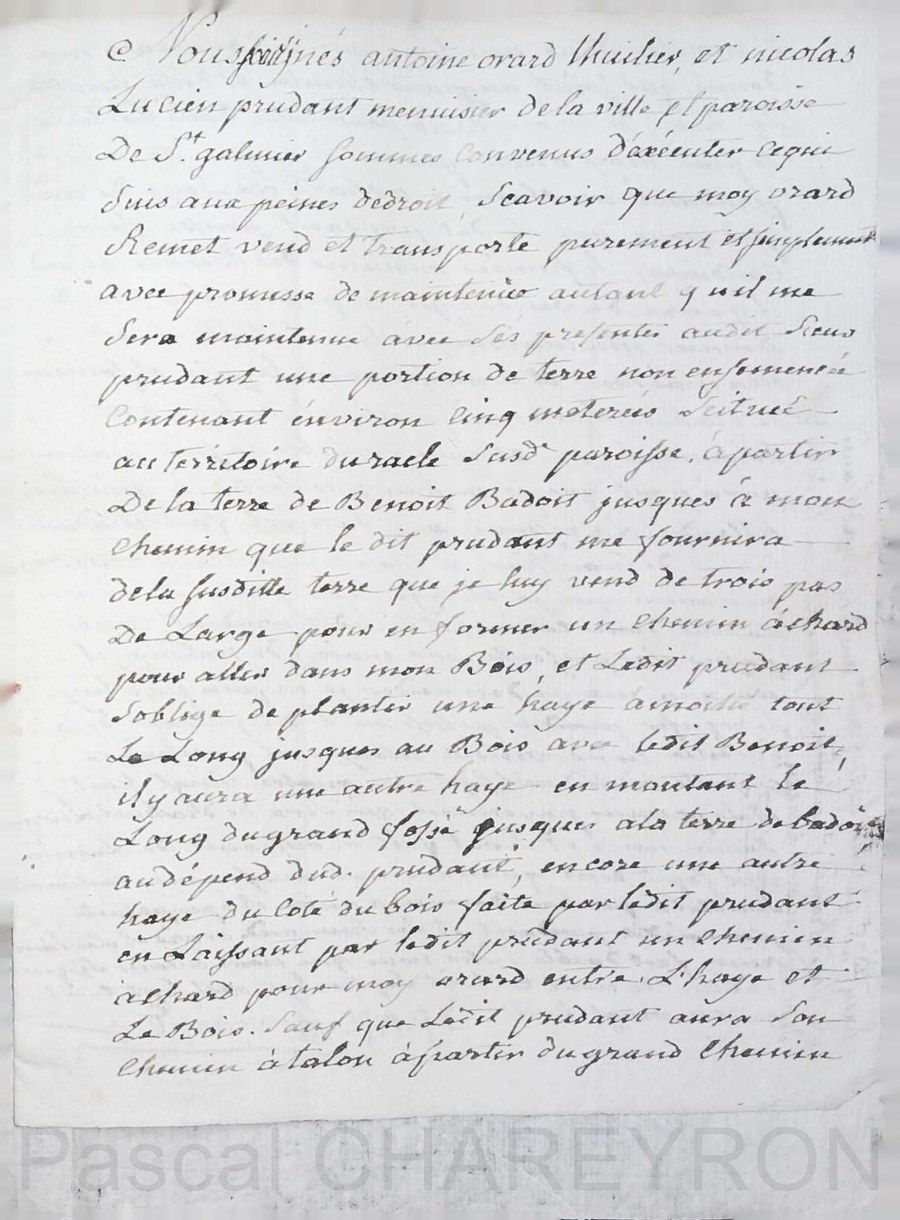 Nous soussignés antoine orard thuilier, et nicolas
Lucien prudant menuisier de la ville et paroisse
De St. galmier sommes Convenus D'éxécuter cequi
Suis aux peines dedroit, Scavoir que moy orard
Remet vend et transporte purement et simplement
avec promesse de maintenüe autant qu'il me
Sera maintenue avec Sés presentes audit Sieur
prudant une portion de terre non ensemencée
Contenant énviron Cinq meterées Scitueé
au territoire du racle Susd. paroisse, à partir
De la terre de Benoit Badoit jusques à mon
Chemin que le dit prudant me fournira
dela susditte terre que je luy vend de trois pas
De Large pour en former un Chemin à chard
pour aller dans mon Bois, et Ledit prudant
S'oblige de planter une haye à moitié tout
Le Long jusques au Bois avec ledit Benoit,
il y aura une autre haye en montant le
Long du grand fossé jusques a la terre de badoit
au dépend dud. prudant, encore une autre
haye du Coté du bois faite par ledit prudant
en Laissant par ledit prudant un Chemin
à chard pour moy orard entre L'haye et
Le Bois. Sauf que Ledit prudant aura Son
Chemin à talon à partir du grand Chemin
Pascal CHAREYRON